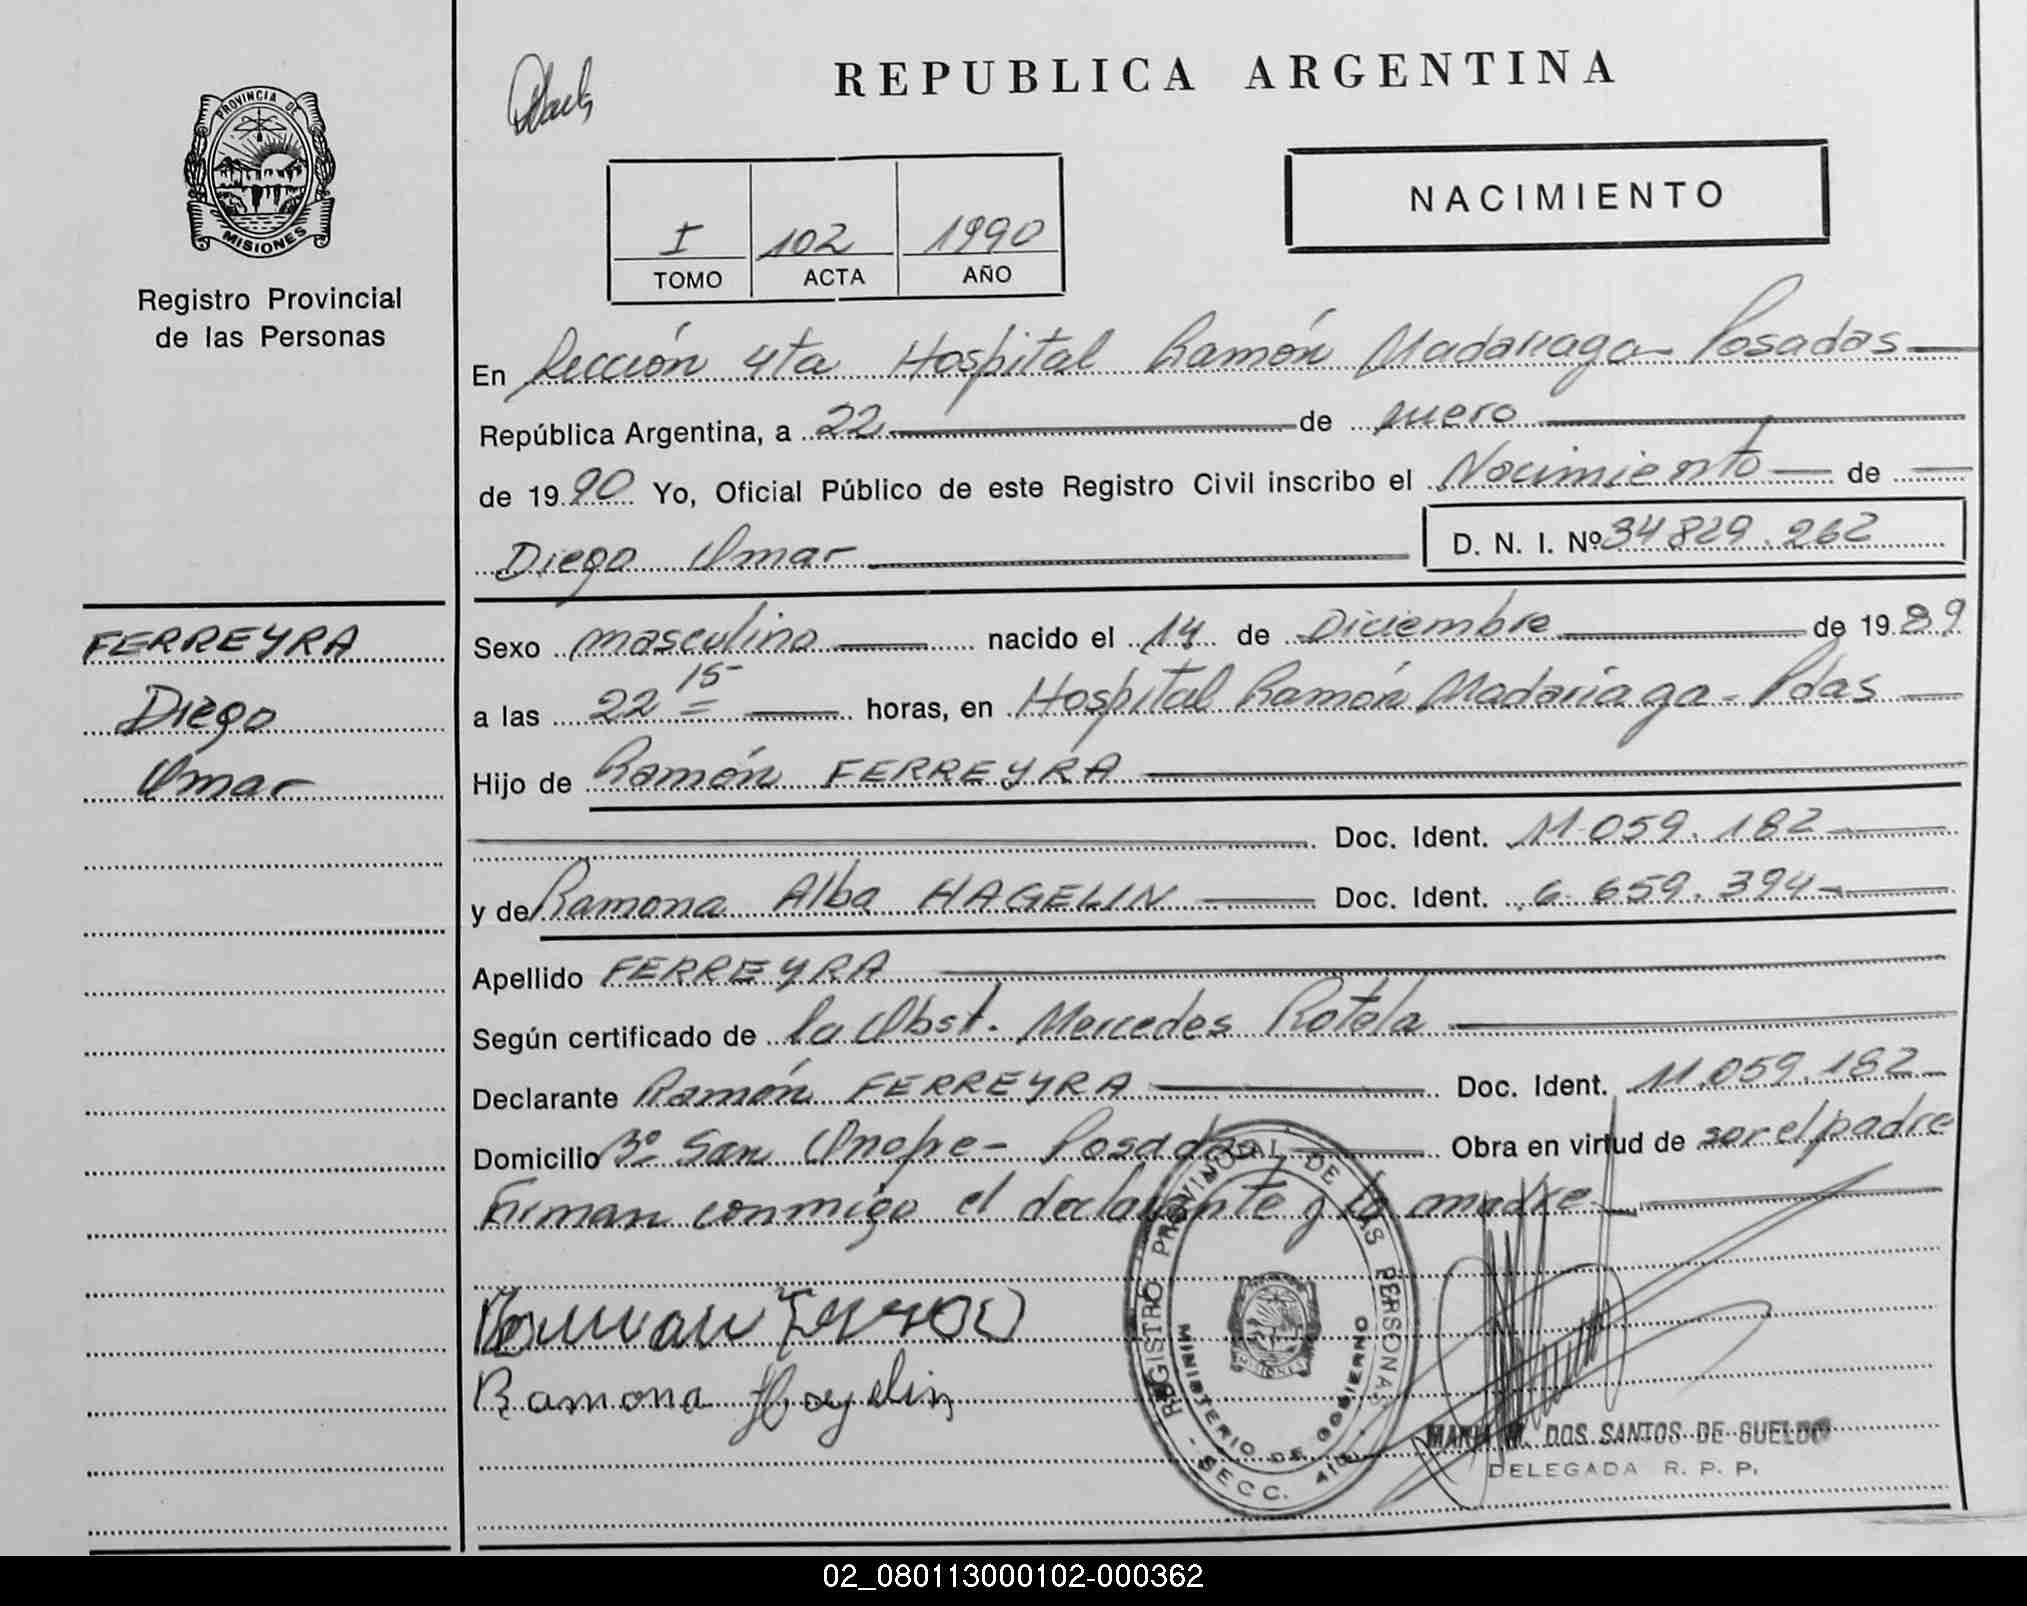 REPUBLICA ARGENTINA
PROVINCIA DE
MISIONES
Registro Provincial
de las Personas
NACIMIENTO
I 102 1990
TOMO ACTA AÑO
En Sección 4ta Hospital Ramón Madariaga - Posadas
República Argentina, a 22 de enero
de 1990 Yo, Oficial Público de este Registro Civil inscribo el Nacimiento de
Diego Omar D. N. I. Nº 34 829.262
FERREYRA
Diego
Omar
Sexo masculino nacido el 14 de Diciembre de 1989
a las 22 15 horas, en Hospital Ramón Madariaga - Pdas
Hijo de Ramón FERREYRA
Doc. Ident. 11.059.182
y de Ramona Alba HAGELIN Doc. Ident. 6.659.394
Apellido FERREYRA
Según certificado de la Obst. Mercedes Rotela
Declarante Ramón FERREYRA Doc. Ident. 11.059.182
Domicilio Bº San Onofre - Posadas Obra en virtud de ser el padre
Firman conmigo el declarante y la madre
Ramona Hagelin
REGISTRO PROVINCIAL DE LAS PERSONAS
MINISTERIO DE GOBIERNO
- SECC. 4ta -
MISIONES
MARIA M. DOS SANTOS DE GUELDO
DELEGADA R. P. P.
02_080113000102-000362